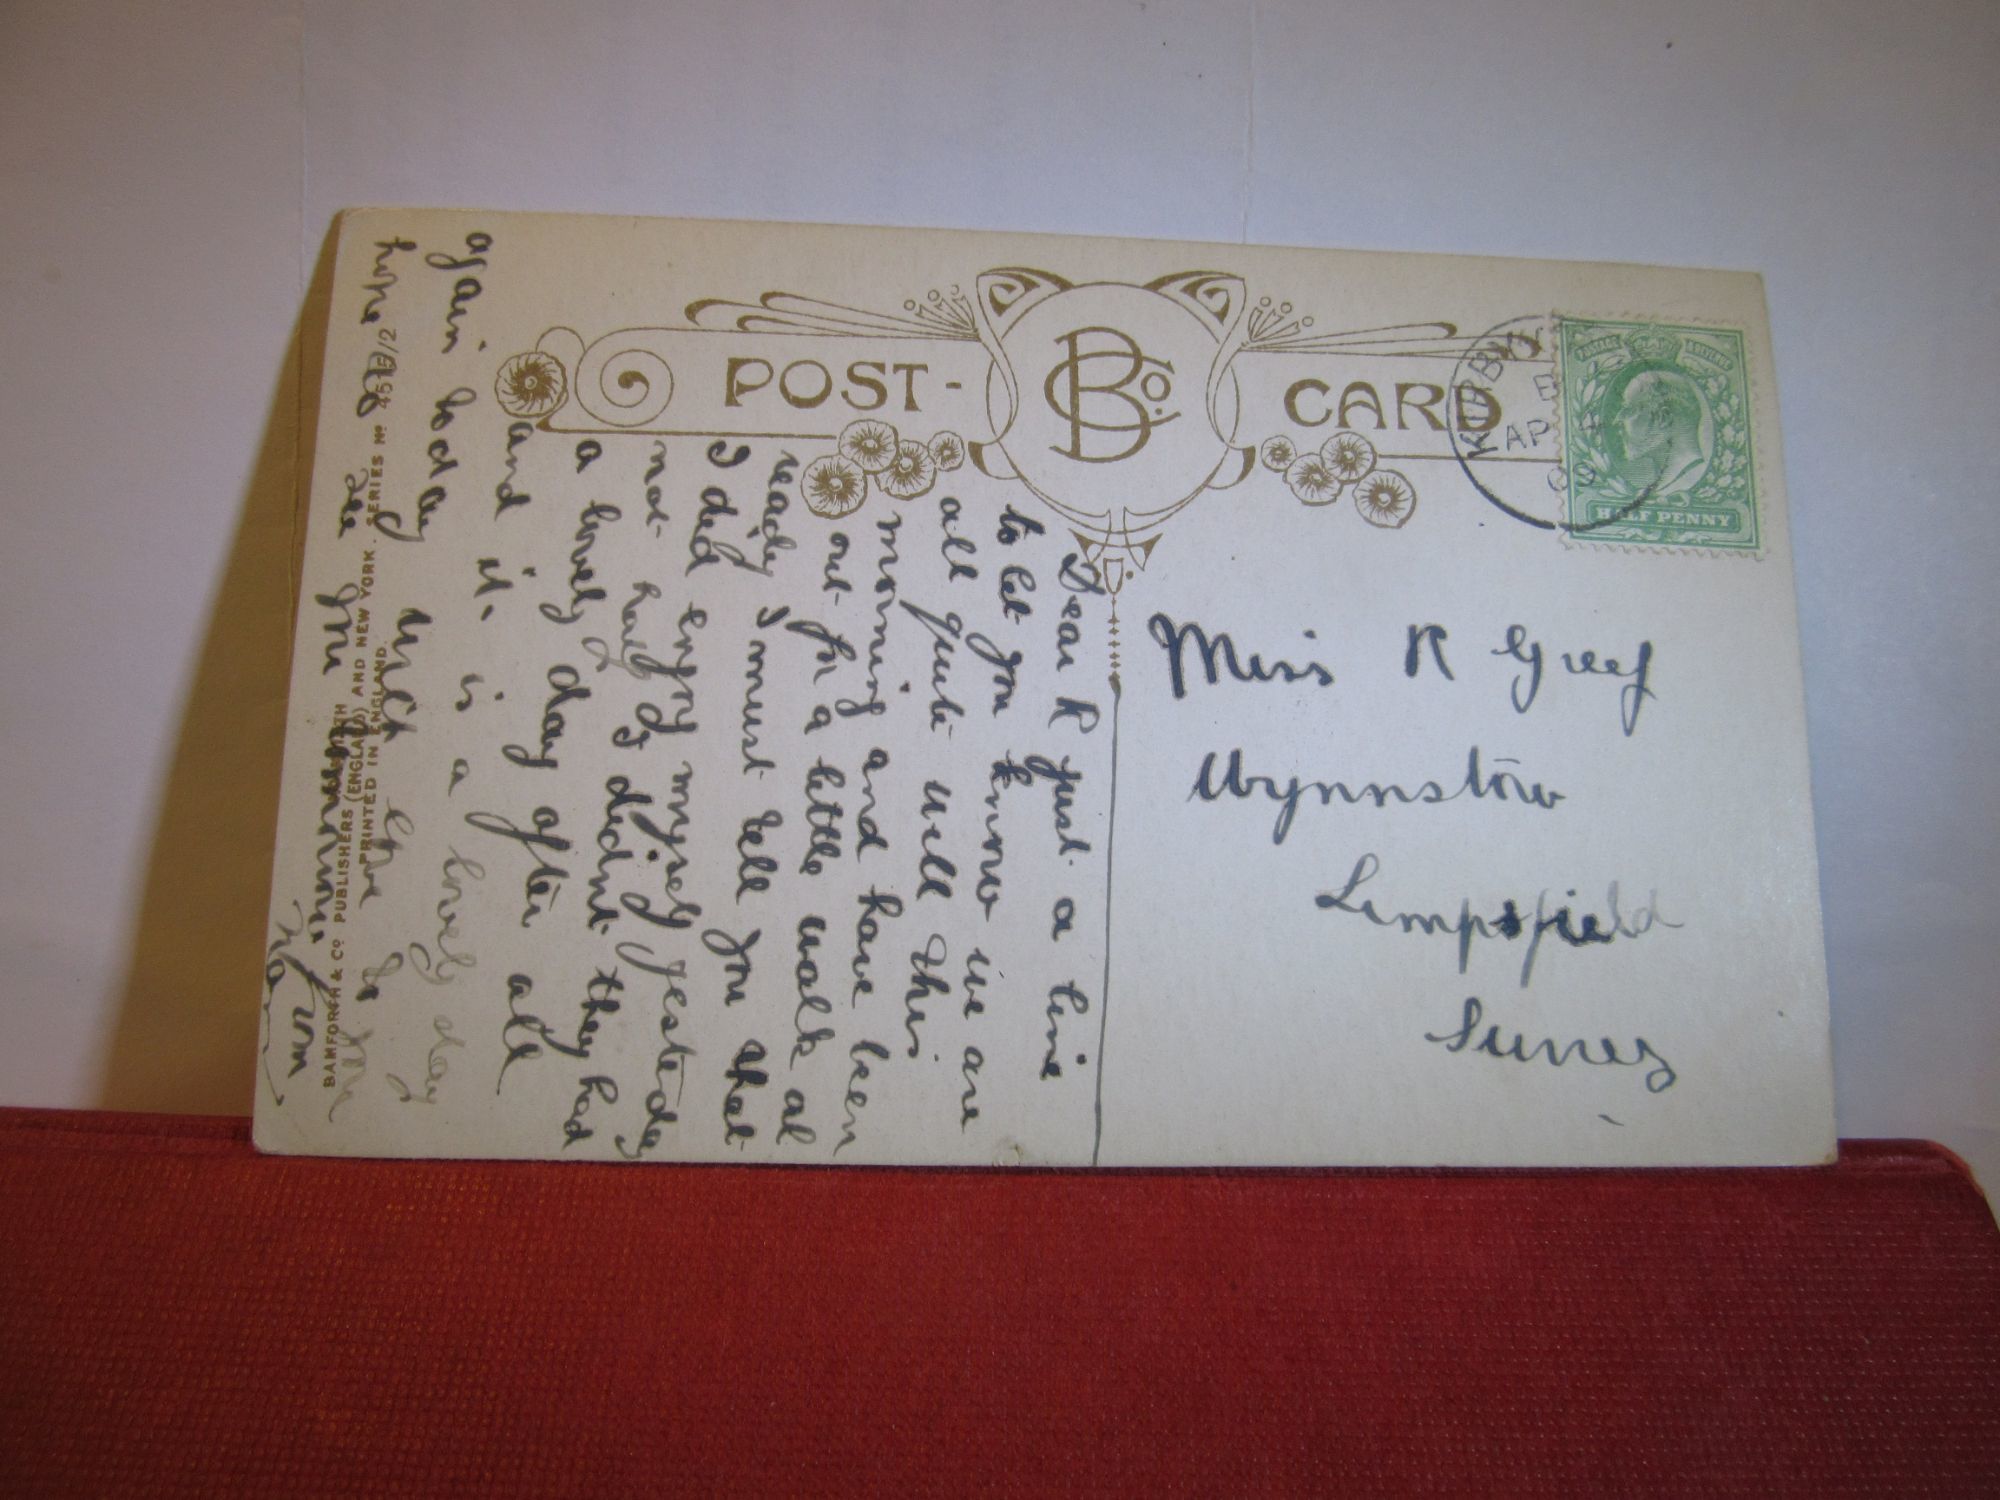 POST-
CARD
B Co.
KIRBY
E
AP
HALF PENNY
Miss R Greey
Wynnstow
Limpsfield
Surrey
Dear R just a line
to let you know we are
all quite well this
morning and have been
out for a little walk al
ready I must tell you that
I did enjoy myself yesterday
not half didnt they had
a lovely day after all
and it is a lovely day
again today well hope to
hope see you
from
BAMFORTH & CO PUBLISHERS (ENGLAND) AND NEW YORK. SERIES No
PRINTED IN ENGLAND.